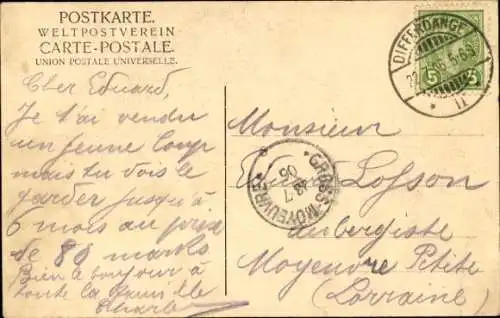 POSTKARTE.
WELTPOSTVEREIN
CARTE-POSTALE.
UNION POSTALE UNIVERSELLE.
DIFFERDANGE
5 5
Cher Eduard,
Je t'ai vendu
un jeune loup
mais tu dois le
garder jusqu'à
6 mois au prix
de 80 marks
Bien le bonjour à
toute la famille
Charles
GROSS-MOYEUVRE
7
06
Monsieur
Eduard Losson
Aubergiste
Moyeuvre Petite
(Lorraine)